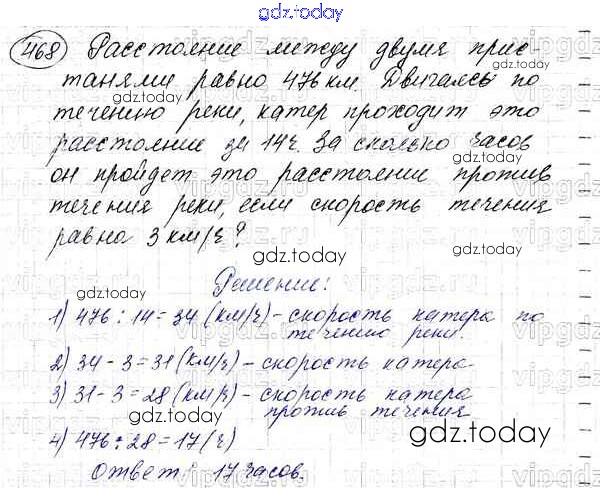 gdz.today
468 Расстояние между двумя прис-
танями равно 476 км. Двигаясь по
течению реки, катер проходит это
расстояние за 14ч. За сколько часов
он пройдет это расстояние против
течения реки, если скорость течения
равна 3 км/ч?
Решение:
1) 476 : 14 = 34 (км/ч) - скорость катера по
течению реки.
2) 34 - 3 = 31 (км/ч) - скорость катера
3) 31 - 3 = 28 (км/ч) - скорость катера
против течения
4) 476 : 28 = 17 (ч)
Ответ: 17 часов.
gdz.today